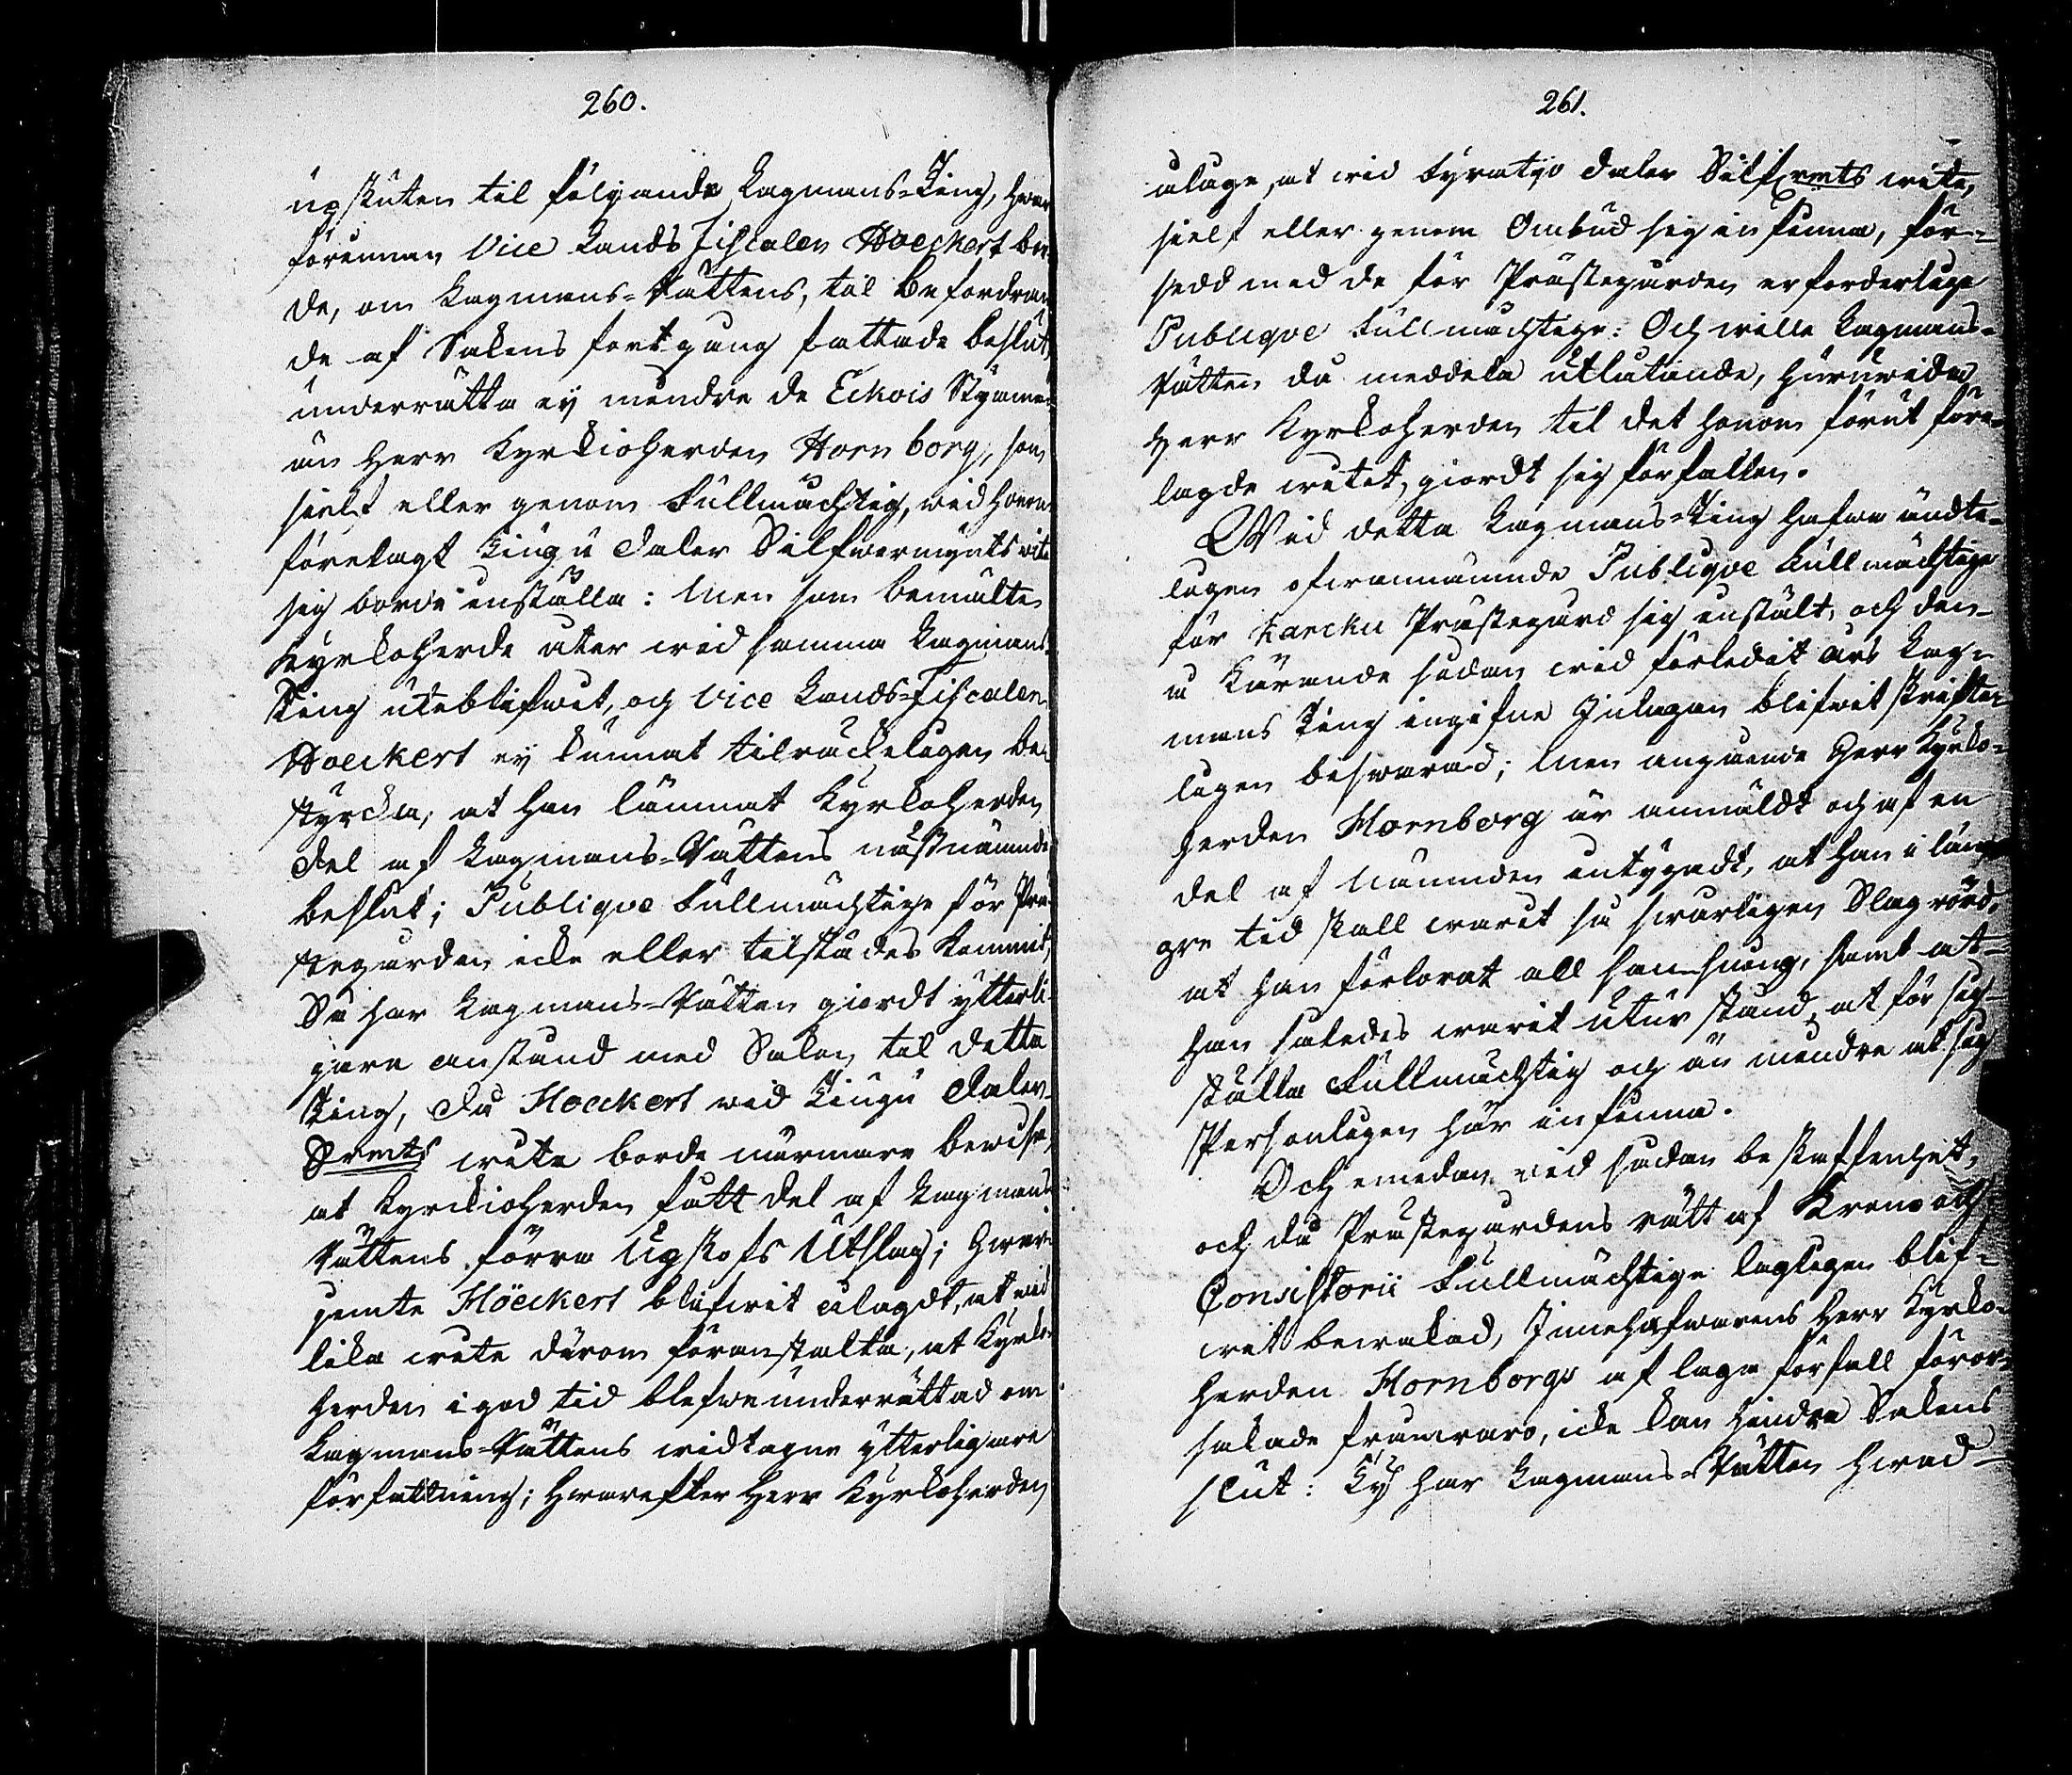 260.
upskuten til följande Lagmans-Ting, hvar
förinnan Vice Lands Fiscalen Hoeckert bor
de, om Lagmans-Rättens, til befordran
de af Sakens fortgang fattade beslut,
underrätta ej mindre de Eckois Styme
än Herr Kyrkioherden Hornborg, som
sielf eller genom Fullmächtig, wid honom
förelagt Tiugu daler Silfwermynts wite
sig borde inställa: Men som bemälte
Kyrkoherde åter wid samma Lagmans
Ting uteblifwit, och Vice Lands-Fiscalen
Hoeckert ej kunnat tilräckeligen be
styrcka, at han lämnat Kyrkoherden
del af Lagmans-Rättens nästnämde
beslut; Publiqve Fullmächtige för Prä
stegården icke eller tilstädes kommit,
Så har Lagmans-Rätten giordt ytterli
gare anstånd med Saken til detta
Ting, då Hoeckert wid Tiugu daler
Srmts wite borde närmare bewisa,
at Kyrkioherden fått del af Lagmans
Rättens förra Upskofs Utslag; Hwar
jemte Höeckert blifwit ålagdt, at wid
lika wite därom föranstalta, at Kyrko
herden i god tid blefwe underrättad om
Lagmans-Rättens widtagne ytterligare
författning; Hwarefter Herr Kyrkoherden
261.
ålage, at wid Fyratijo daler Silfwrmts wite,
sielf eller genom Ombud sig infinna, för-
sedd med de för Prästegården erforderlige
Publiqve Fullmächtige: Och wille Lagmans-
Rätten då meddela utlåtande, huruwida
Herr Kyrkoherden til det honom förut före-
lagde witet, giordt sig förfallen.
Wid detta Lagmans-Ting hafwa ändte-
ligen ofwannämnde Publiqve Fullmächtige
för Karcku Prästegård sig instält, och den-
 Kärande sedan wid förledit års Lag-
mans Ting ingifne Inlagan blifwit skrifte-
ligen beswarad; Men angående Herr Kyrko-
herden Hornborg är anmäldt och af en
del af Nämnden intygadt, at han i läng
gre tid skall warit så swårligen Slagrörd,
at han förlorat all sansning, samt at
han således warit utur stånd, at för sig
ställa Fullmächtig och än mindre at sig
Personligen här infinna.
Och emedan wid sådan beskaffenhet,
och då Prästegårdens rätt af Krono och
Consistorii Fullmächtige lagligen blif-
wit bewakad, Innehafwarens Herr Kyrko-
herden Hornborgs af laga förfall föror-
sakade frånwaro, icke kan hindra Sakens
slut: Ty har Lagmans-Rätten hwad